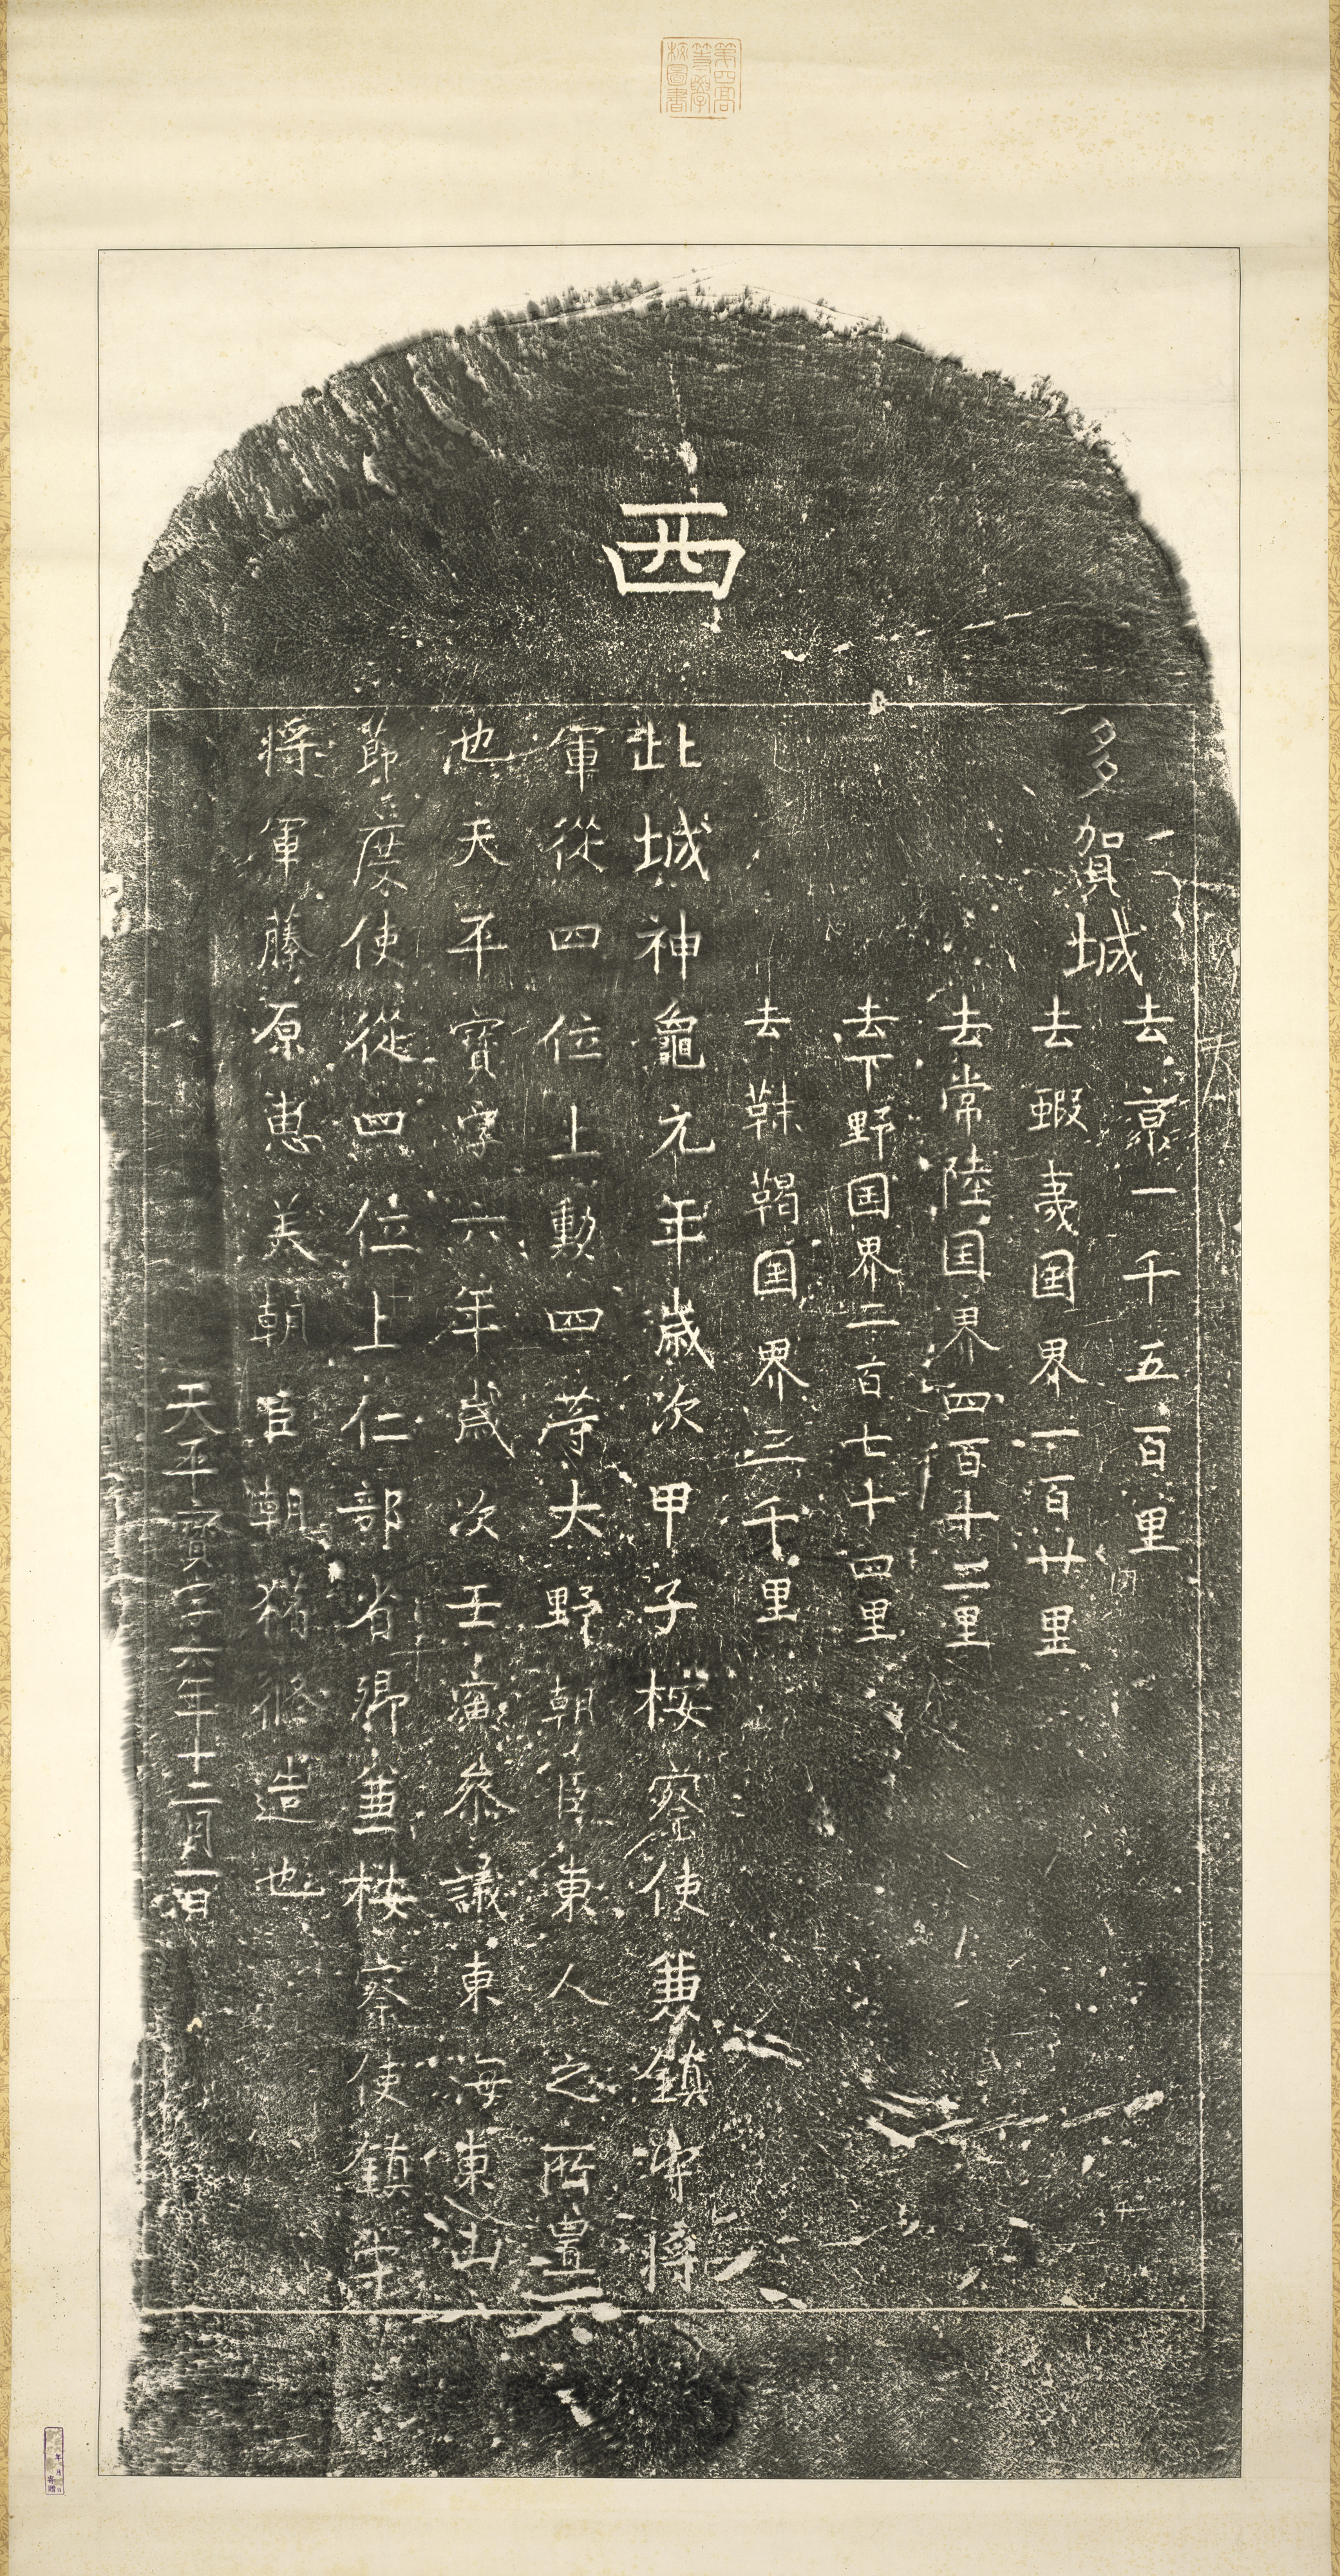 第四高
等學
校圖書
西
多賀城
去京一千五百里
去蝦夷国界一百廿里
去常陸国界四百十二里
去下野国界二百七十四里
去靺鞨国界三千里
此城神龜元年歳次甲子桉察使兼鎮守將
軍從四位上勳四等大野朝臣東人之所置
也天平寶字六年歳次壬寅參議東海東山
節度使從四位上仁部省卿兼桉察使鎮守
將軍藤原惠美朝臣朝獦修造也
天平寶字六年十二月一日
年月日
寄贈